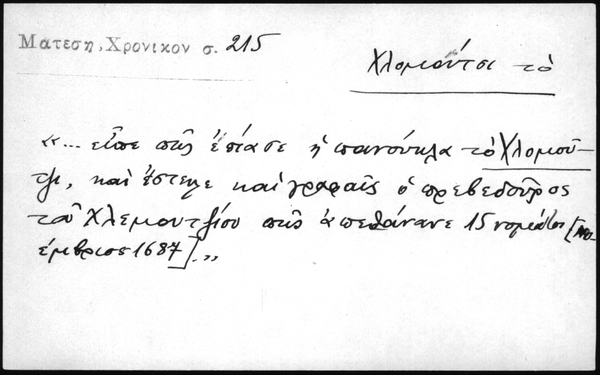 Ματεση, Χρονικον σ. 215
Χλομούτσι τὸ
«... εἶπε πῶς ἐπίασε ἡ πανούκλα τὸ Χλομοῦ-
τζι, καὶ ἔστειλε καὶ γραφαῖς ὁ πρεβεδοῦρος
τοῦ Χλεμουτζίου πῶς ἀπεθάνανε 15 νομάτοι [Νο-
έμβριος 1687].»